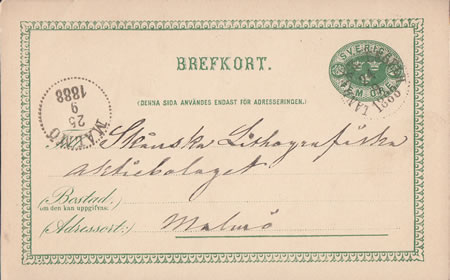 SVERIGE
FEM ÖRE
BREFKORT.
1888
(DENNA SIDA ANVÄNDES ENDAST FÖR ADRESSERINGEN.)
MALMÖ
25
9
1888
Skånska Lithografiska
Aktiebolaget
(Bostad:)
om den kan uppgifvas.
(Adressort:) Malmö